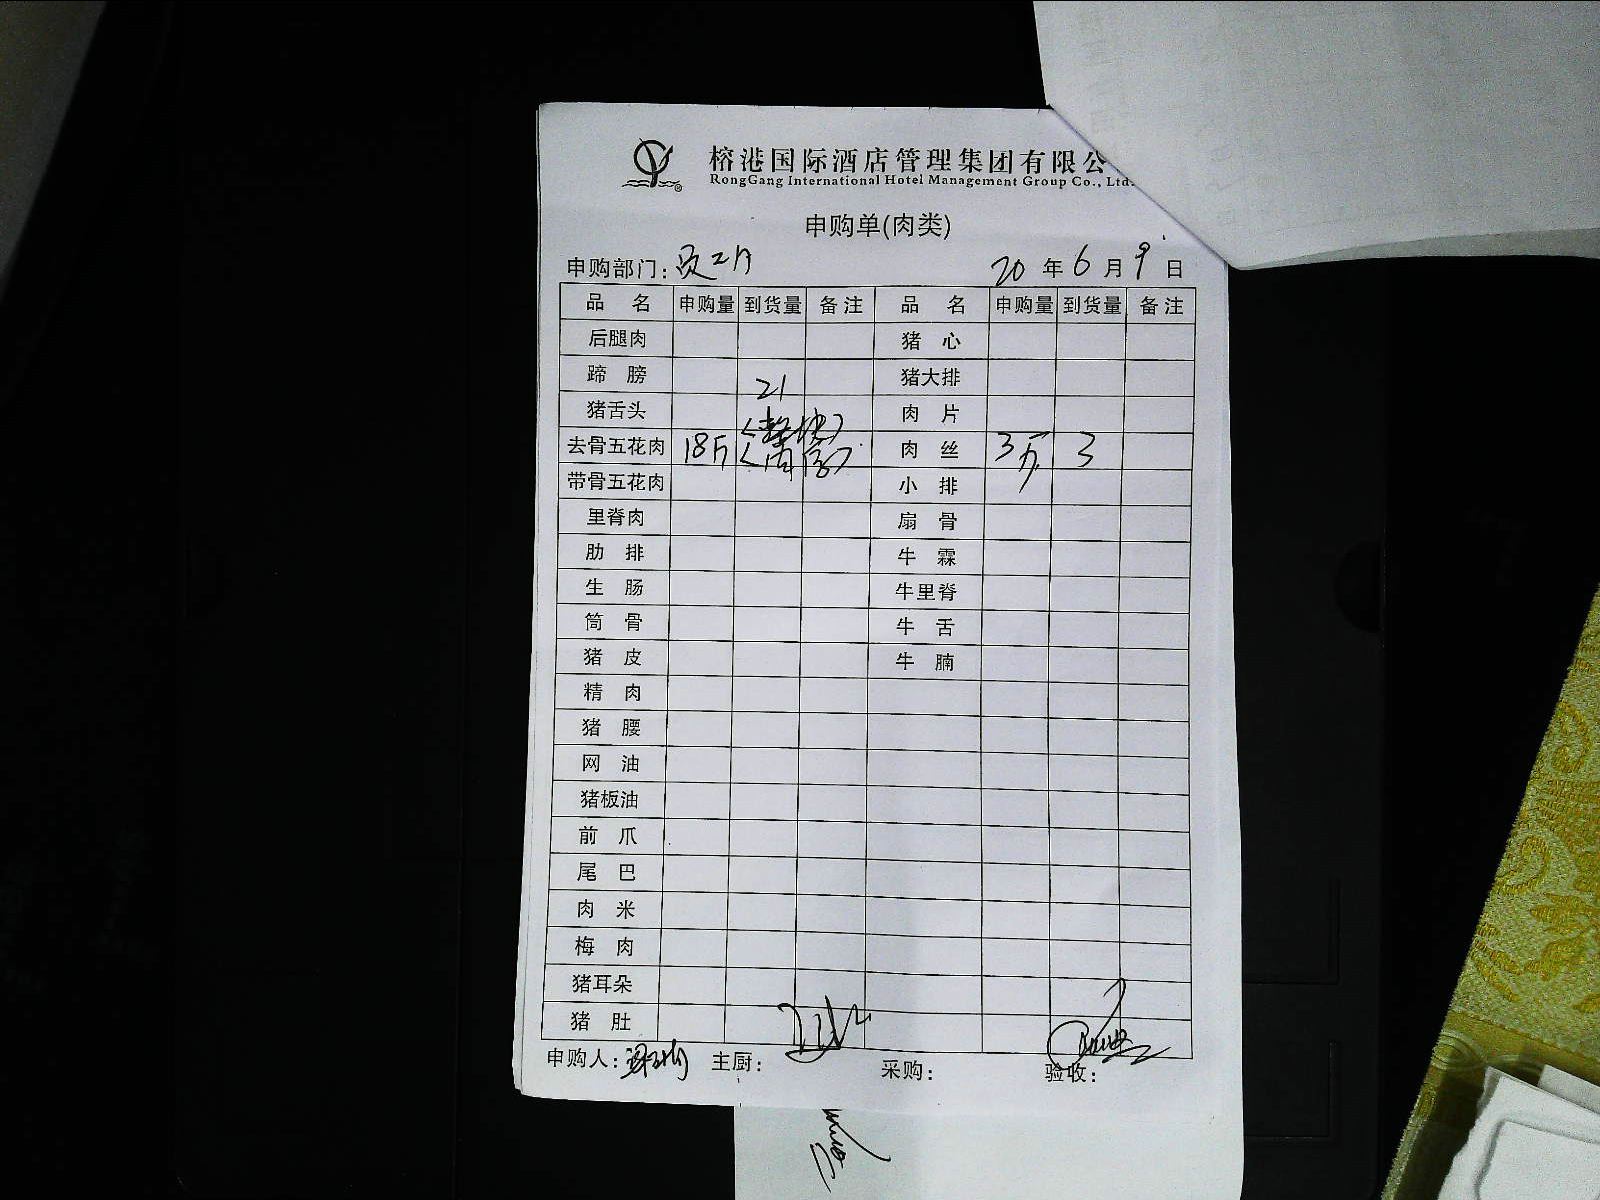 榕港国际酒店管理集团有限公
RongGang International Hotel Management Group Co., Ltd.
申购单(肉类)
申购部门: 员工 20 年 6 月 9 日
品 名 申购量 到货量 备注 品 名 申购量 到货量 备注
后腿肉 猪 心
蹄 膀 21 猪大排
猪舌头 (整块) 肉 片
去骨五花肉 18斤 肉 丝 3斤 3
带骨五花肉 小 排
里脊肉 扇 骨
肋 排 牛 霖
生 肠 牛里脊
筒 骨 牛 舌
猪 皮 牛 腩
精 肉
猪 腰
网 油
猪板油
前 爪
尾 巴
肉 米
梅 肉
猪耳朵
猪 肚
申购人: 主厨: 采购: 验收: